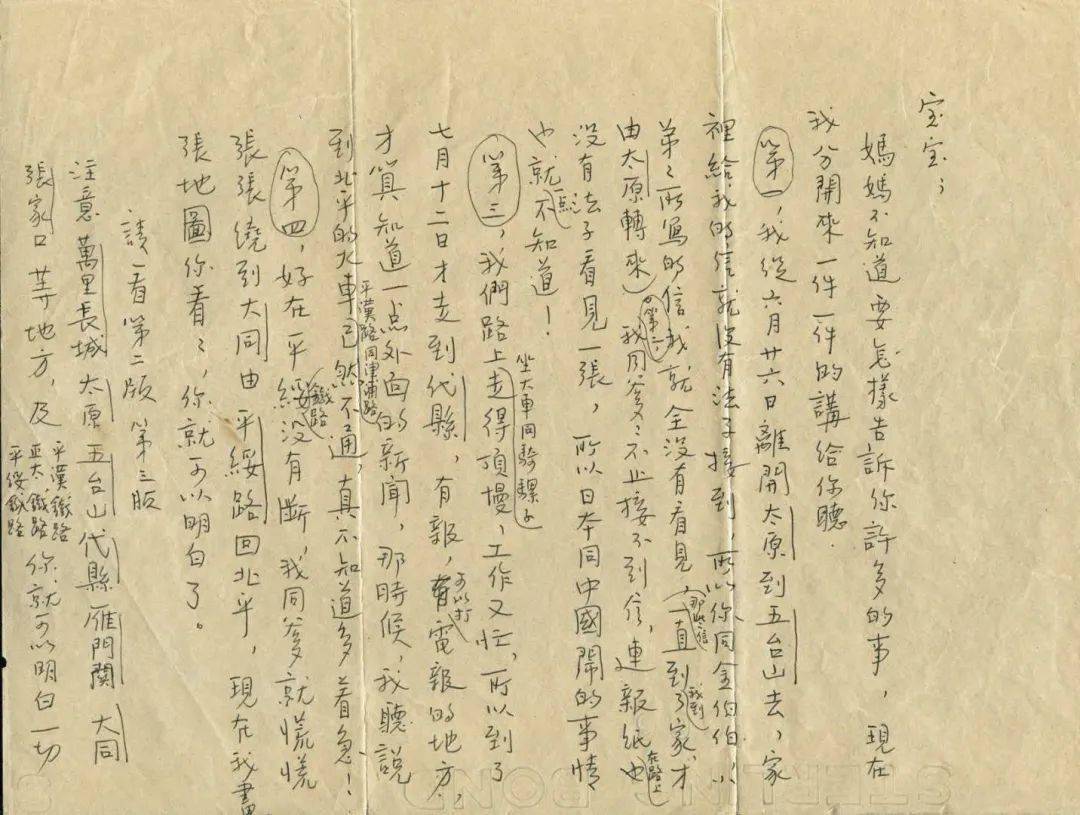 宝宝；
媽媽不知道要怎樣告訴你許多的事，現在
我分開來一件一件的講給你聽．
第一，我從六月廿六日離開太原到五台山去，家
裡給我的信就沒有法子接到，所以你同金伯伯、小
弟々所寫的信我就全沒有看見（那些信一直到我到了家，才
由太原轉來）。第二 我同爹々不止接不到信，連報紙也在路上
沒有法子看見一張，所以日本同中國鬧的事情
也就一點不知道！
第三，我們路上坐大車同騎騾子走得頂慢，工作又忙，所以到了
七月十二日才走到代縣，有報，可以打電報的地方，
才算知道一点外面的新聞，那時候，我聽說
到北平的火車平漢路同津浦路已然不通，真不知道多着急！
第四，好在平綏鐵路沒有斷，我同爹就慌慌
張張繞到大同由平綏路回北平，現在我畫
張地圖你看々，你就可以明白了。
請看第二版 第三版
注意萬里長城 太原 五台山 代縣 雁門關 大同
張家口 等地方，及平漢鐵路 正太鐵路 平綏鐵路 你就可以明白一切